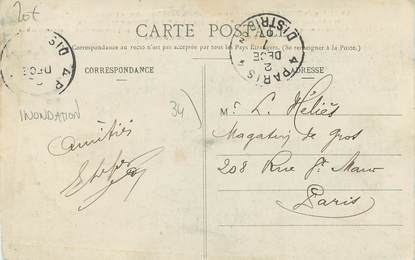 20t
CARTE POSTALE
Correspondance au recto n'est pas acceptée par tous les Pays Étrangers. (Se renseigner à la Poste.)
CORRESPONDANCE
ADRESSE
PARIS 4
DISTRIBUTION
2
DECE
07
INONDATION
34
Amitiés
Mr L. Héliès
Magasin de gros
208 Rue St Maur
Paris